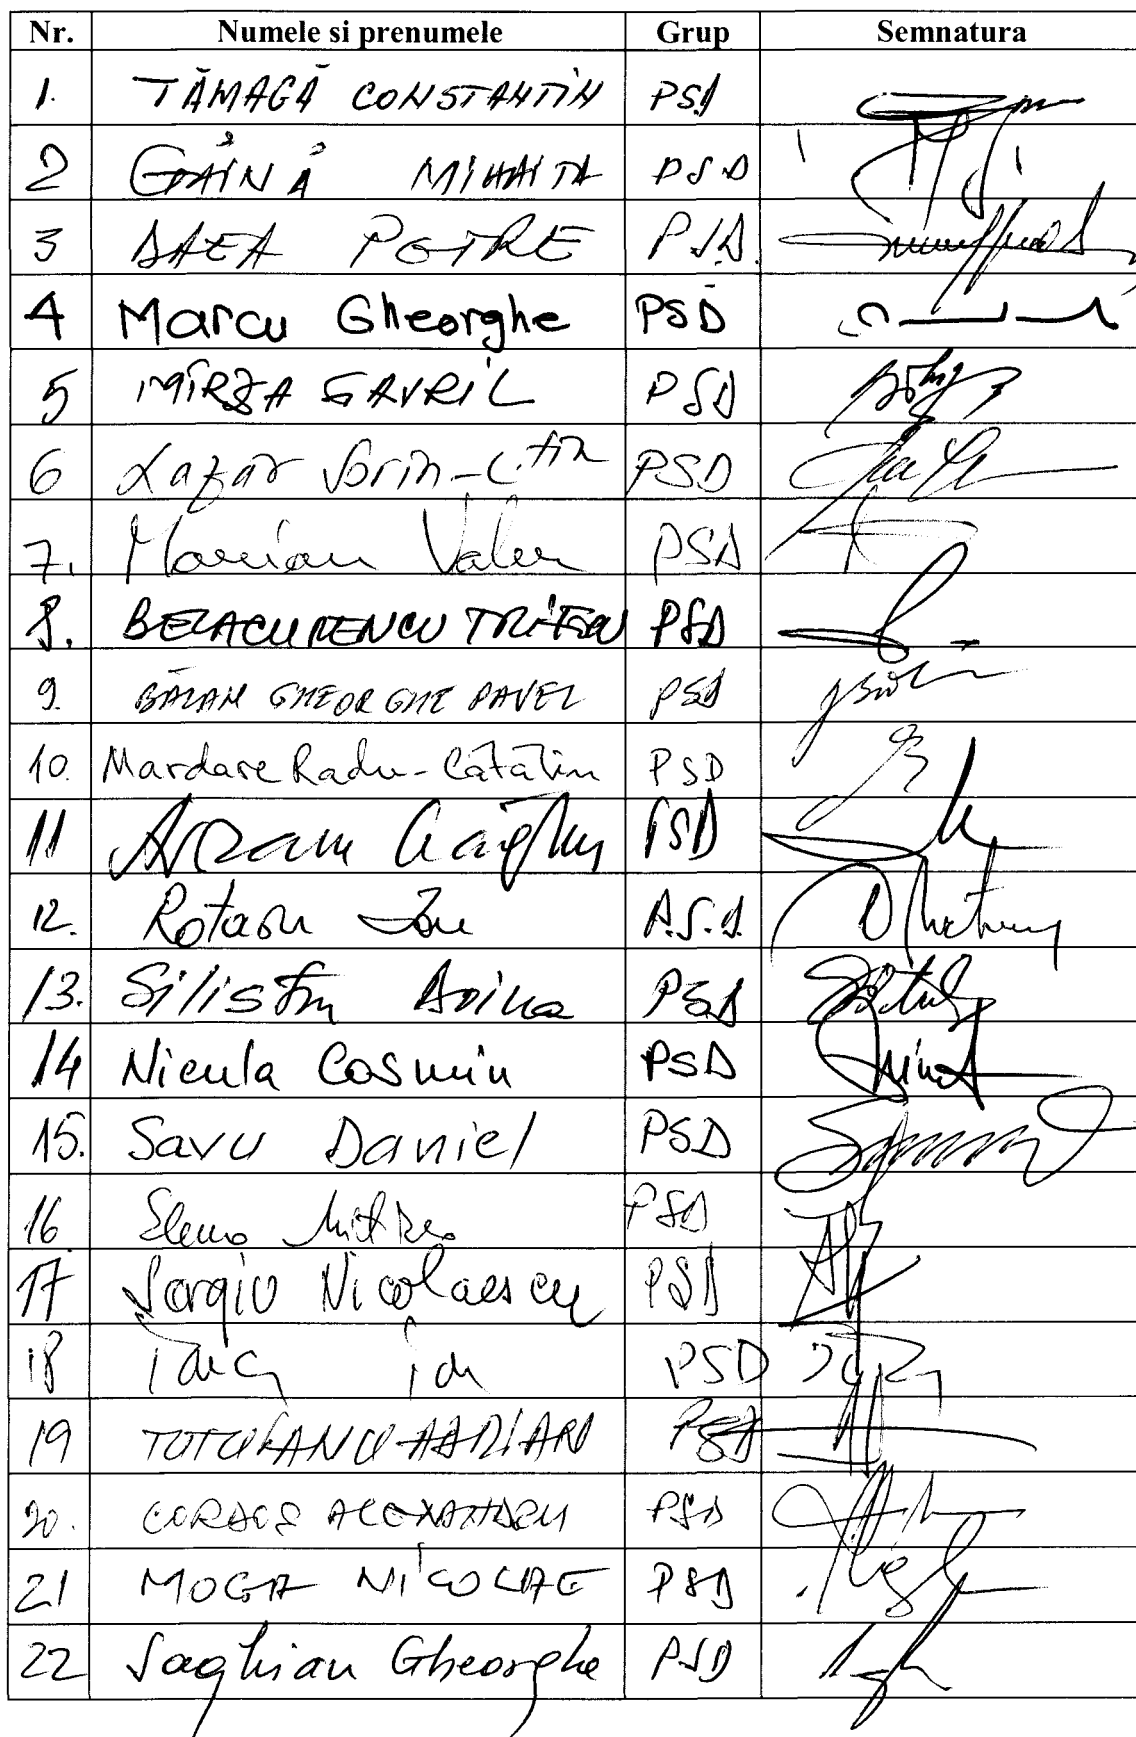 Nr. Numele si prenumele Grup Semnatura
1. TĂMAGĂ CONSTANTIN PSD
2 GĂINĂ MIHAITA PSD
3 DAEA PETRE PSD
4 Marcu Gheorghe PSD
5 MÎRZA GAVRIL PSD
6 Lazăr Sorin-C.tin PSD
7. Marian Valer PSD
8. PSD
9. BĂLAN GHEORGHE PAVEL PSD
10. Mardare Radu-Cătălin PSD
11 PSD
12. Rotaru Ion P.S.D.
13. Silistru Doina PSD
14 Nicula Cosmin PSD
15. Savu Daniel PSD
16 Elena Mitrea PSD
17 Sergiu Nicolaescu PSD
18 PSD
19 PSD
20. CORDOȘ ALEXANDRU PSD
21 MOGA NICOLAE PSD
22 Saghian Gheorghe PSD